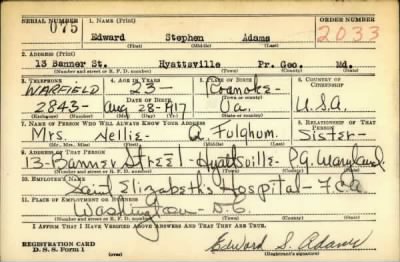 SERIAL NUMBER 1. NAME (Print) ORDER NUMBER
075 Edward Stephen Adams 2033
(First) (Middle) (Last)
2. ADDRESS (Print)
13 Banner St. Hyattsville Pr. Geo. Md.
(Number and street or R. F. D. number) (Town) (County) (State)
3. TELEPHONE 4. AGE IN YEARS 5. PLACE OF BIRTH 6. COUNTRY OF CITIZENSHIP
WARFIELD 23 Roanoke
(Town or county)
DATE OF BIRTH
2843 Aug 28-1917 Va. U.S.A.
(Exchange) (Number) (Mo.) (Day) (Yr.) (State or country)
7. NAME OF PERSON WHO WILL ALWAYS KNOW YOUR ADDRESS 8. RELATIONSHIP OF THAT PERSON
Mrs. Nellie A. Fulghum. Sister
(Mr., Mrs., Miss) (First) (Middle) (Last)
9. ADDRESS OF THAT PERSON
13-Banner Street-Hyattsville P.G. Maryland
(Number and street or R. F. D. number) (Town) (County) (State)
10. EMPLOYER'S NAME
Saint Elizabeth's Hospital-
11. PLACE OF EMPLOYMENT OR BUSINESS
Washington D.C.
(Number and street or R. F. D. number) (Town) (County) (State)
I AFFIRM THAT I HAVE VERIFIED ABOVE ANSWERS AND THAT THEY ARE TRUE.
REGISTRATION CARD
D. S. S. Form 1
Edward S. Adams
(Registrant's signature)